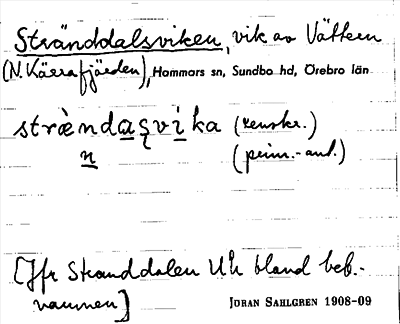 Stränddalsviken, vik av Vättern
(N. Kärrafjärden), Hammars sn, Sundbo hd, Örebro län
strὲndaşvika (renskr.)
n (prim.-ant.)
[Jfr Stranddalen Uh bland beb.-
namnen]
JÖRAN SAHLGREN 1908-09